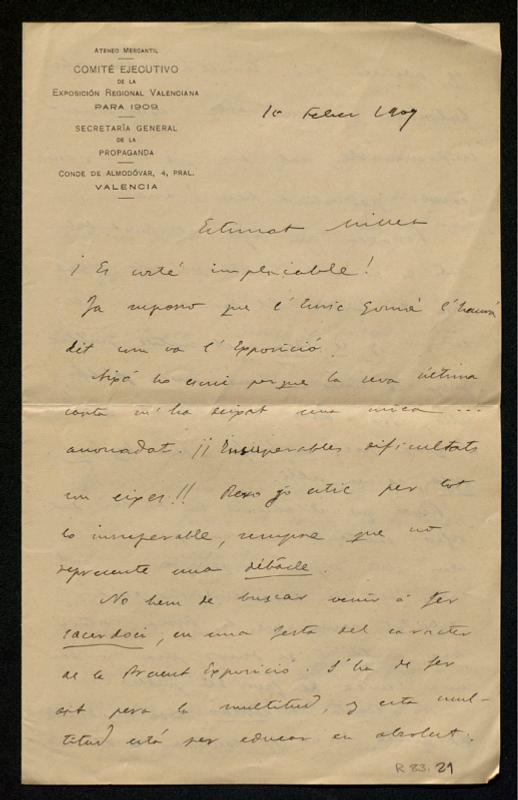 ATENEO MERCANTIL
COMITÉ EJECUTIVO
DE LA
EXPOSICIÓN REGIONAL VALENCIANA
PARA 1909
SECRETARÍA GENERAL
DE LA
PROPAGANDA
CONDE DE ALMODÓVAR, 4, PRAL.
VALENCIA
10 Febrer 1909
Estimat Millet
¡Es vosté implacable!
Ja suposo que l'Enric Gomá l'haurá
dit com va l'Exposició.
Aixó ho escric perque la seva última
carta m'ha deixat una mica ...
anonadat. ¡¡Insuperables dificultats
son eixes!! Pero jo estic per tot
lo insuperable, sempre que no
represente una débâcle.
No hem de buscar venir á fer
sacerdoci, en una festa del carácter
de la Present Exposició. S'ha de fer
art pera la multitud, y esta mul-
titud está per educar en absolut.
R 83. 21